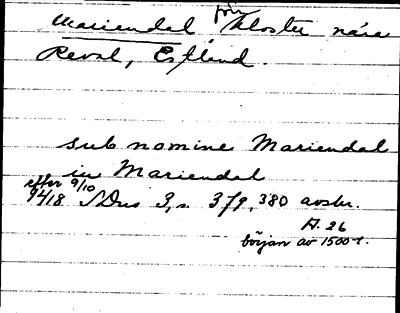 Mariendal, förr kloster nära
Reval, Estland.
sub nomine Mariendal
in Mariendal
efter 9/10
1418 SDns 3, s. 379, 380 avskr.
A. 26
början av 1500-t.